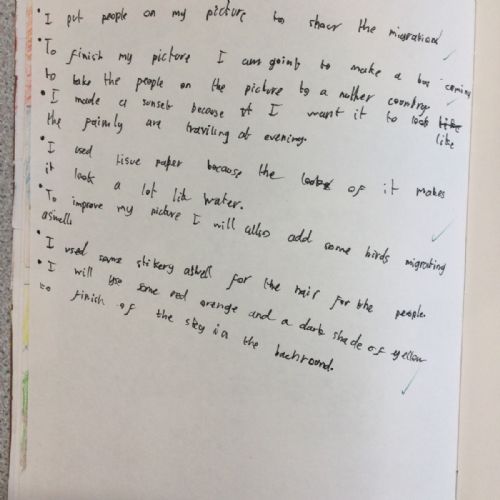 • I put people on my picture to show the migration
• To finish my picture I am going to make a boa coming
to take the people on the picture to a nuther country
• I made a sunset because it I want it to look like like
the paimly are traviling at evening.
• I used tisue paper because the look of it makes
it look a lot lik water.
• To improve my picture I will allso add some birds migrating
aswell
• I used some stikery aswell for the hair for the people.
• I will use some red orange and a dark shade of yellow
to finish of the sky in the backround.